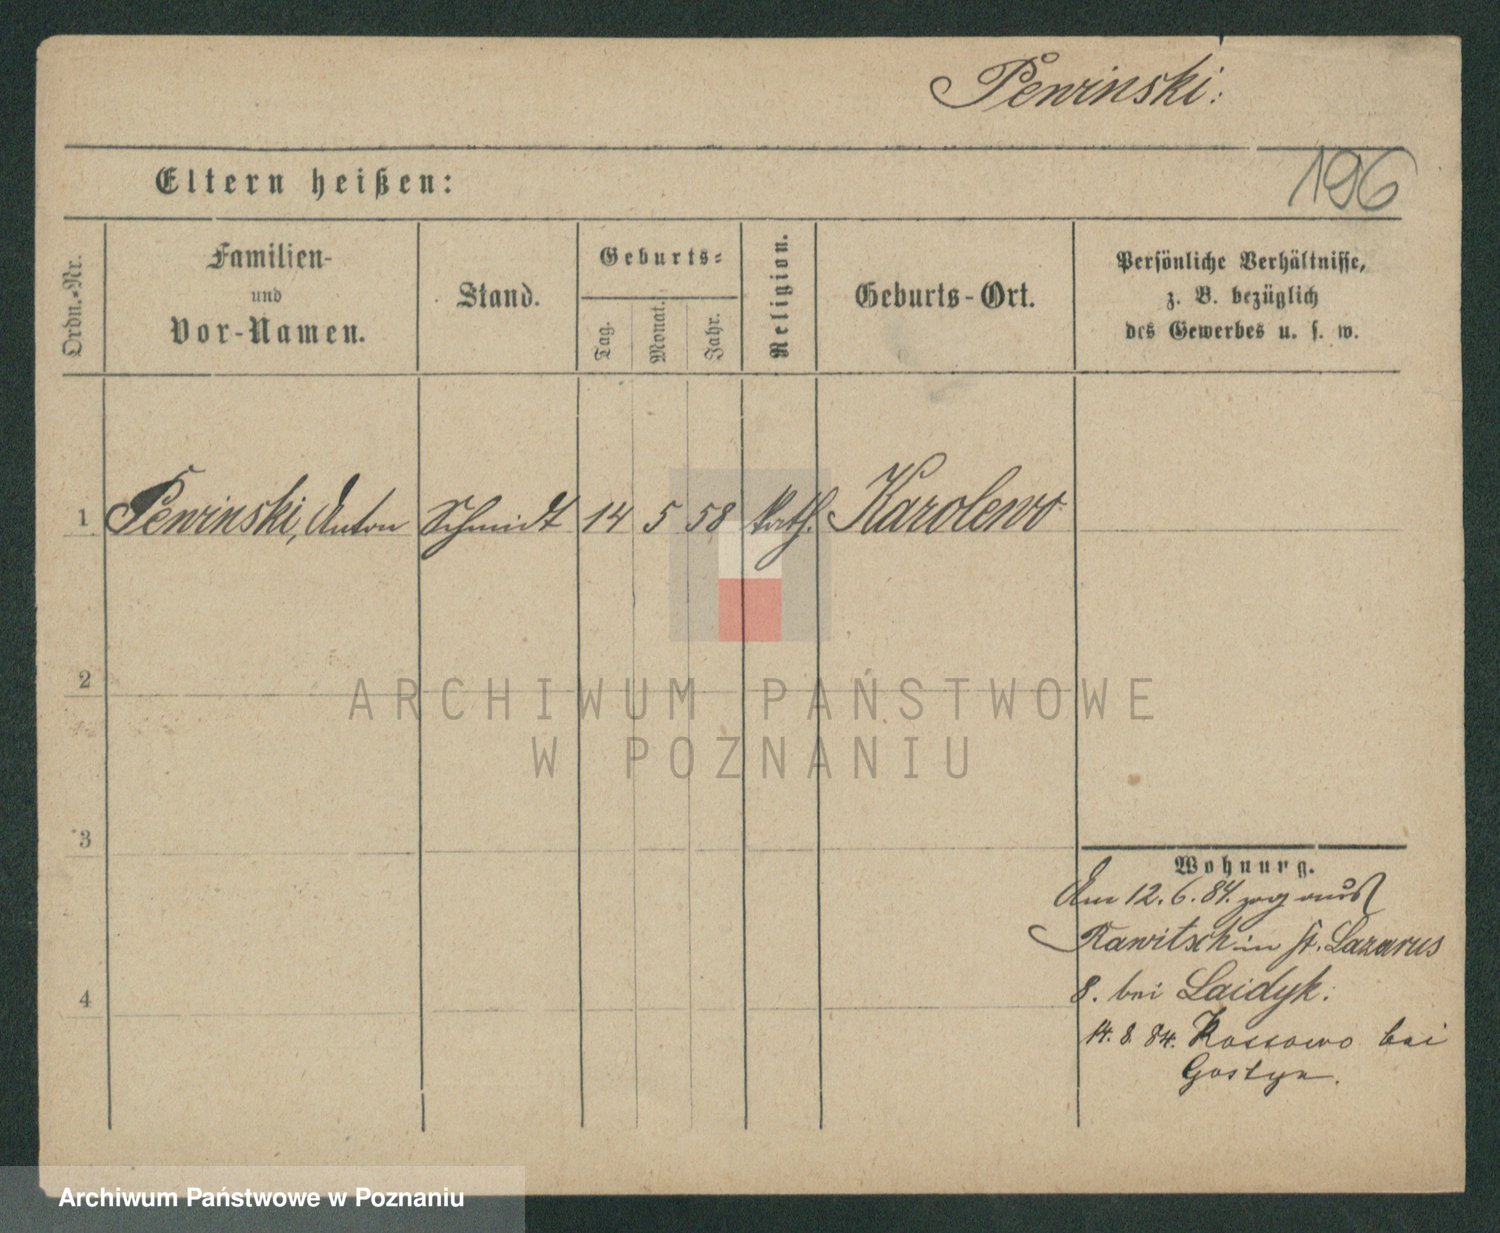 Pewinski:
196
Eltern heißen:
Ordn.-Nr.
Familien-
und
Vor-Namen.
Stand.
Geburts-
Tag.
Monat.
Jahr.
Religion.
Geburts-Ort.
Persönliche Verhältnisse,
z. B. bezüglich
des Gewerbes u. s. w.
1 Pewinski, Anton Schmidt 14 5 58 kath. Karolewo
2
ARCHIWUM PAŃSTWOWE
W POZNANIU
3
Wohnung.
Am 12.6.84. zog aus
Rawitsch in St. Lazarus
4
8. bei Laidyk.
14. 8. 84. Kossowo bei
Gostyn.
Archiwum Państwowe w Poznaniu